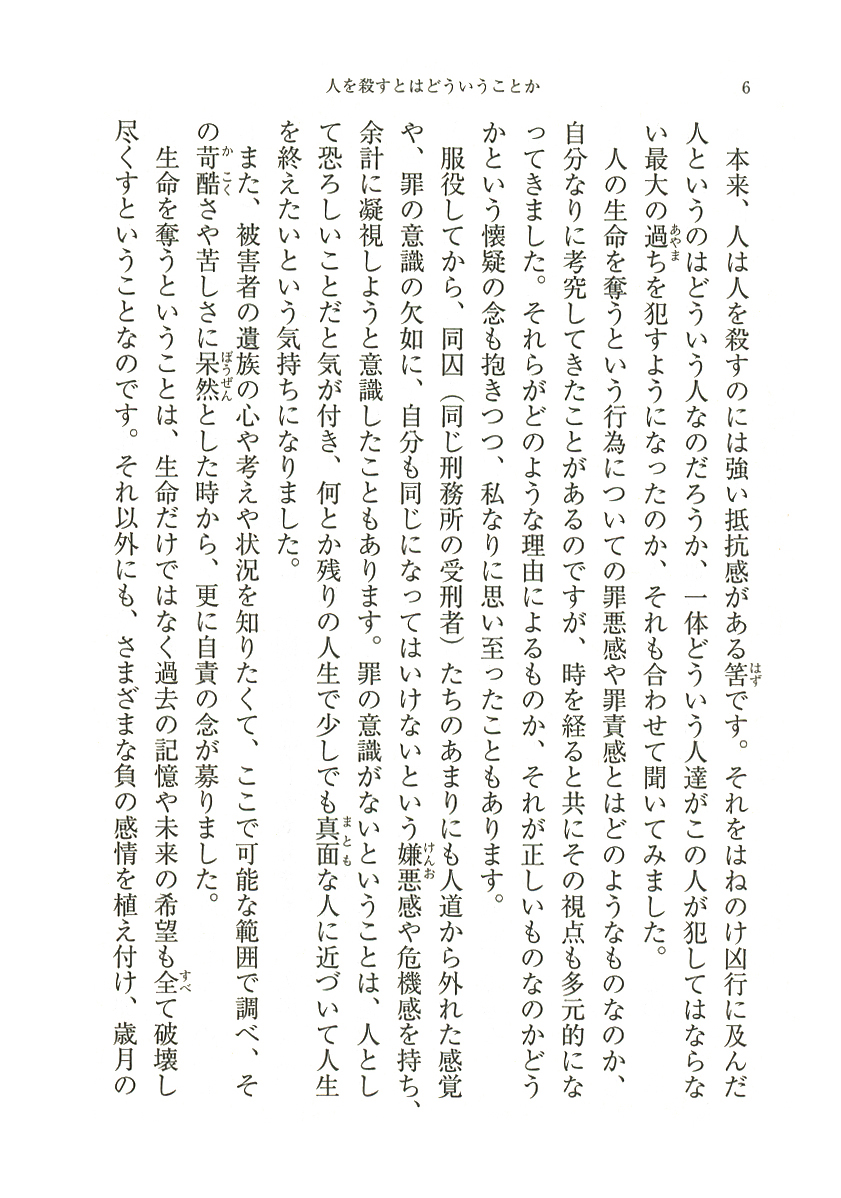 人を殺すとはどういうことか
6
本来、人は人を殺すのには強い抵抗感がある筈です。それをはねのけ凶行に及んだ
人というのはどういう人なのだろうか、一体どういう人達がこの人が犯してはならな
い最大の過ちを犯すようになったのか、それも合わせて聞いてみました。
人の生命を奪うという行為についての罪悪感や罪責感とはどのようなものなのか、
自分なりに考究してきたことがあるのですが、時を経ると共にその視点も多元的にな
ってきました。それらがどのような理由によるものか、それが正しいものなのかどう
かという懐疑の念も抱きつつ、私なりに思い至ったこともあります。
服役してから、同囚（同じ刑務所の受刑者）たちのあまりにも人道から外れた感覚
や、罪の意識の欠如に、自分も同じになってはいけないという嫌悪感や危機感を持ち、
余計に凝視しようと意識したこともあります。罪の意識がないということは、人とし
て恐ろしいことだと気が付き、何とか残りの人生で少しでも真面な人に近づいて人生
を終えたいという気持ちになりました。
また、被害者の遺族の心や考えや状況を知りたくて、ここで可能な範囲で調べ、そ
の苛酷さや苦しさに呆然とした時から、更に自責の念が募りました。
生命を奪うということは、生命だけではなく過去の記憶や未来の希望も全て破壊し
尽くすということなのです。それ以外にも、さまざまな負の感情を植え付け、歳月の